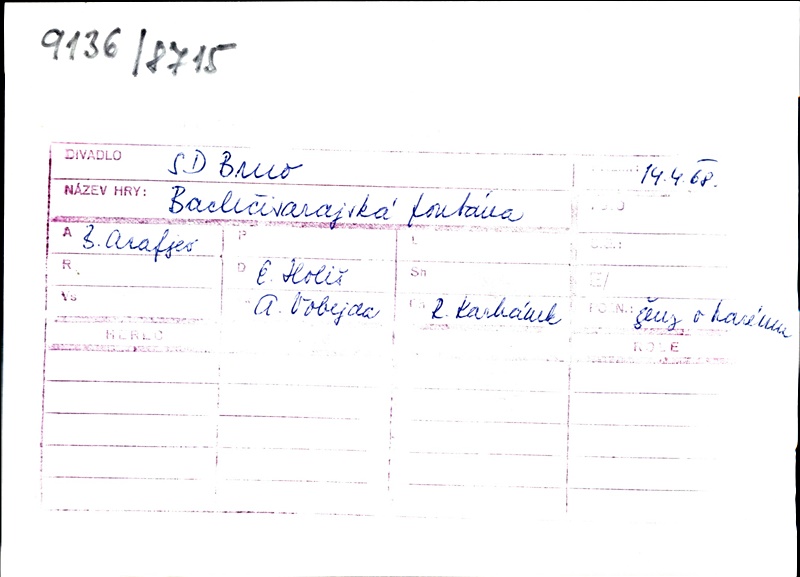 9136/8715
DIVADLO SD Brno 14.4.68.
NÁZEV HRY: Bachčisarajská fontána
A B. Asafjev P L
R. D E. Holiš Sn
A. Vobejda R. Karhánek ženy v harému
HEREC ROLE